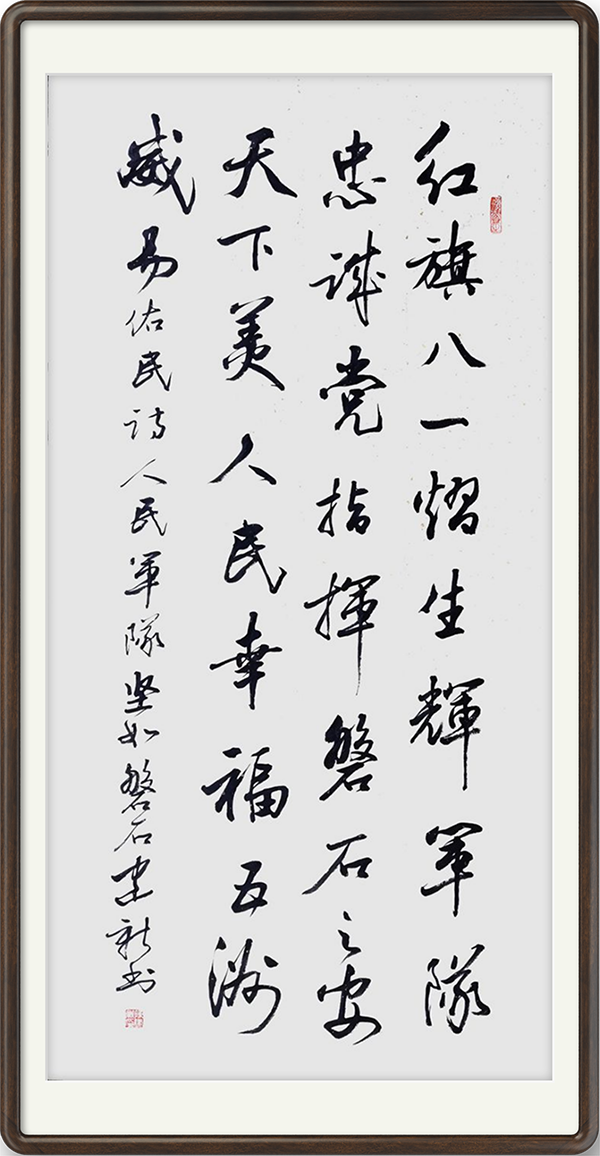 红旗八一熠生輝軍隊
忠诚党指揮磐石之安
天下美人民幸福五洲
威易佑民诗人民军隊坚如磐石建新书